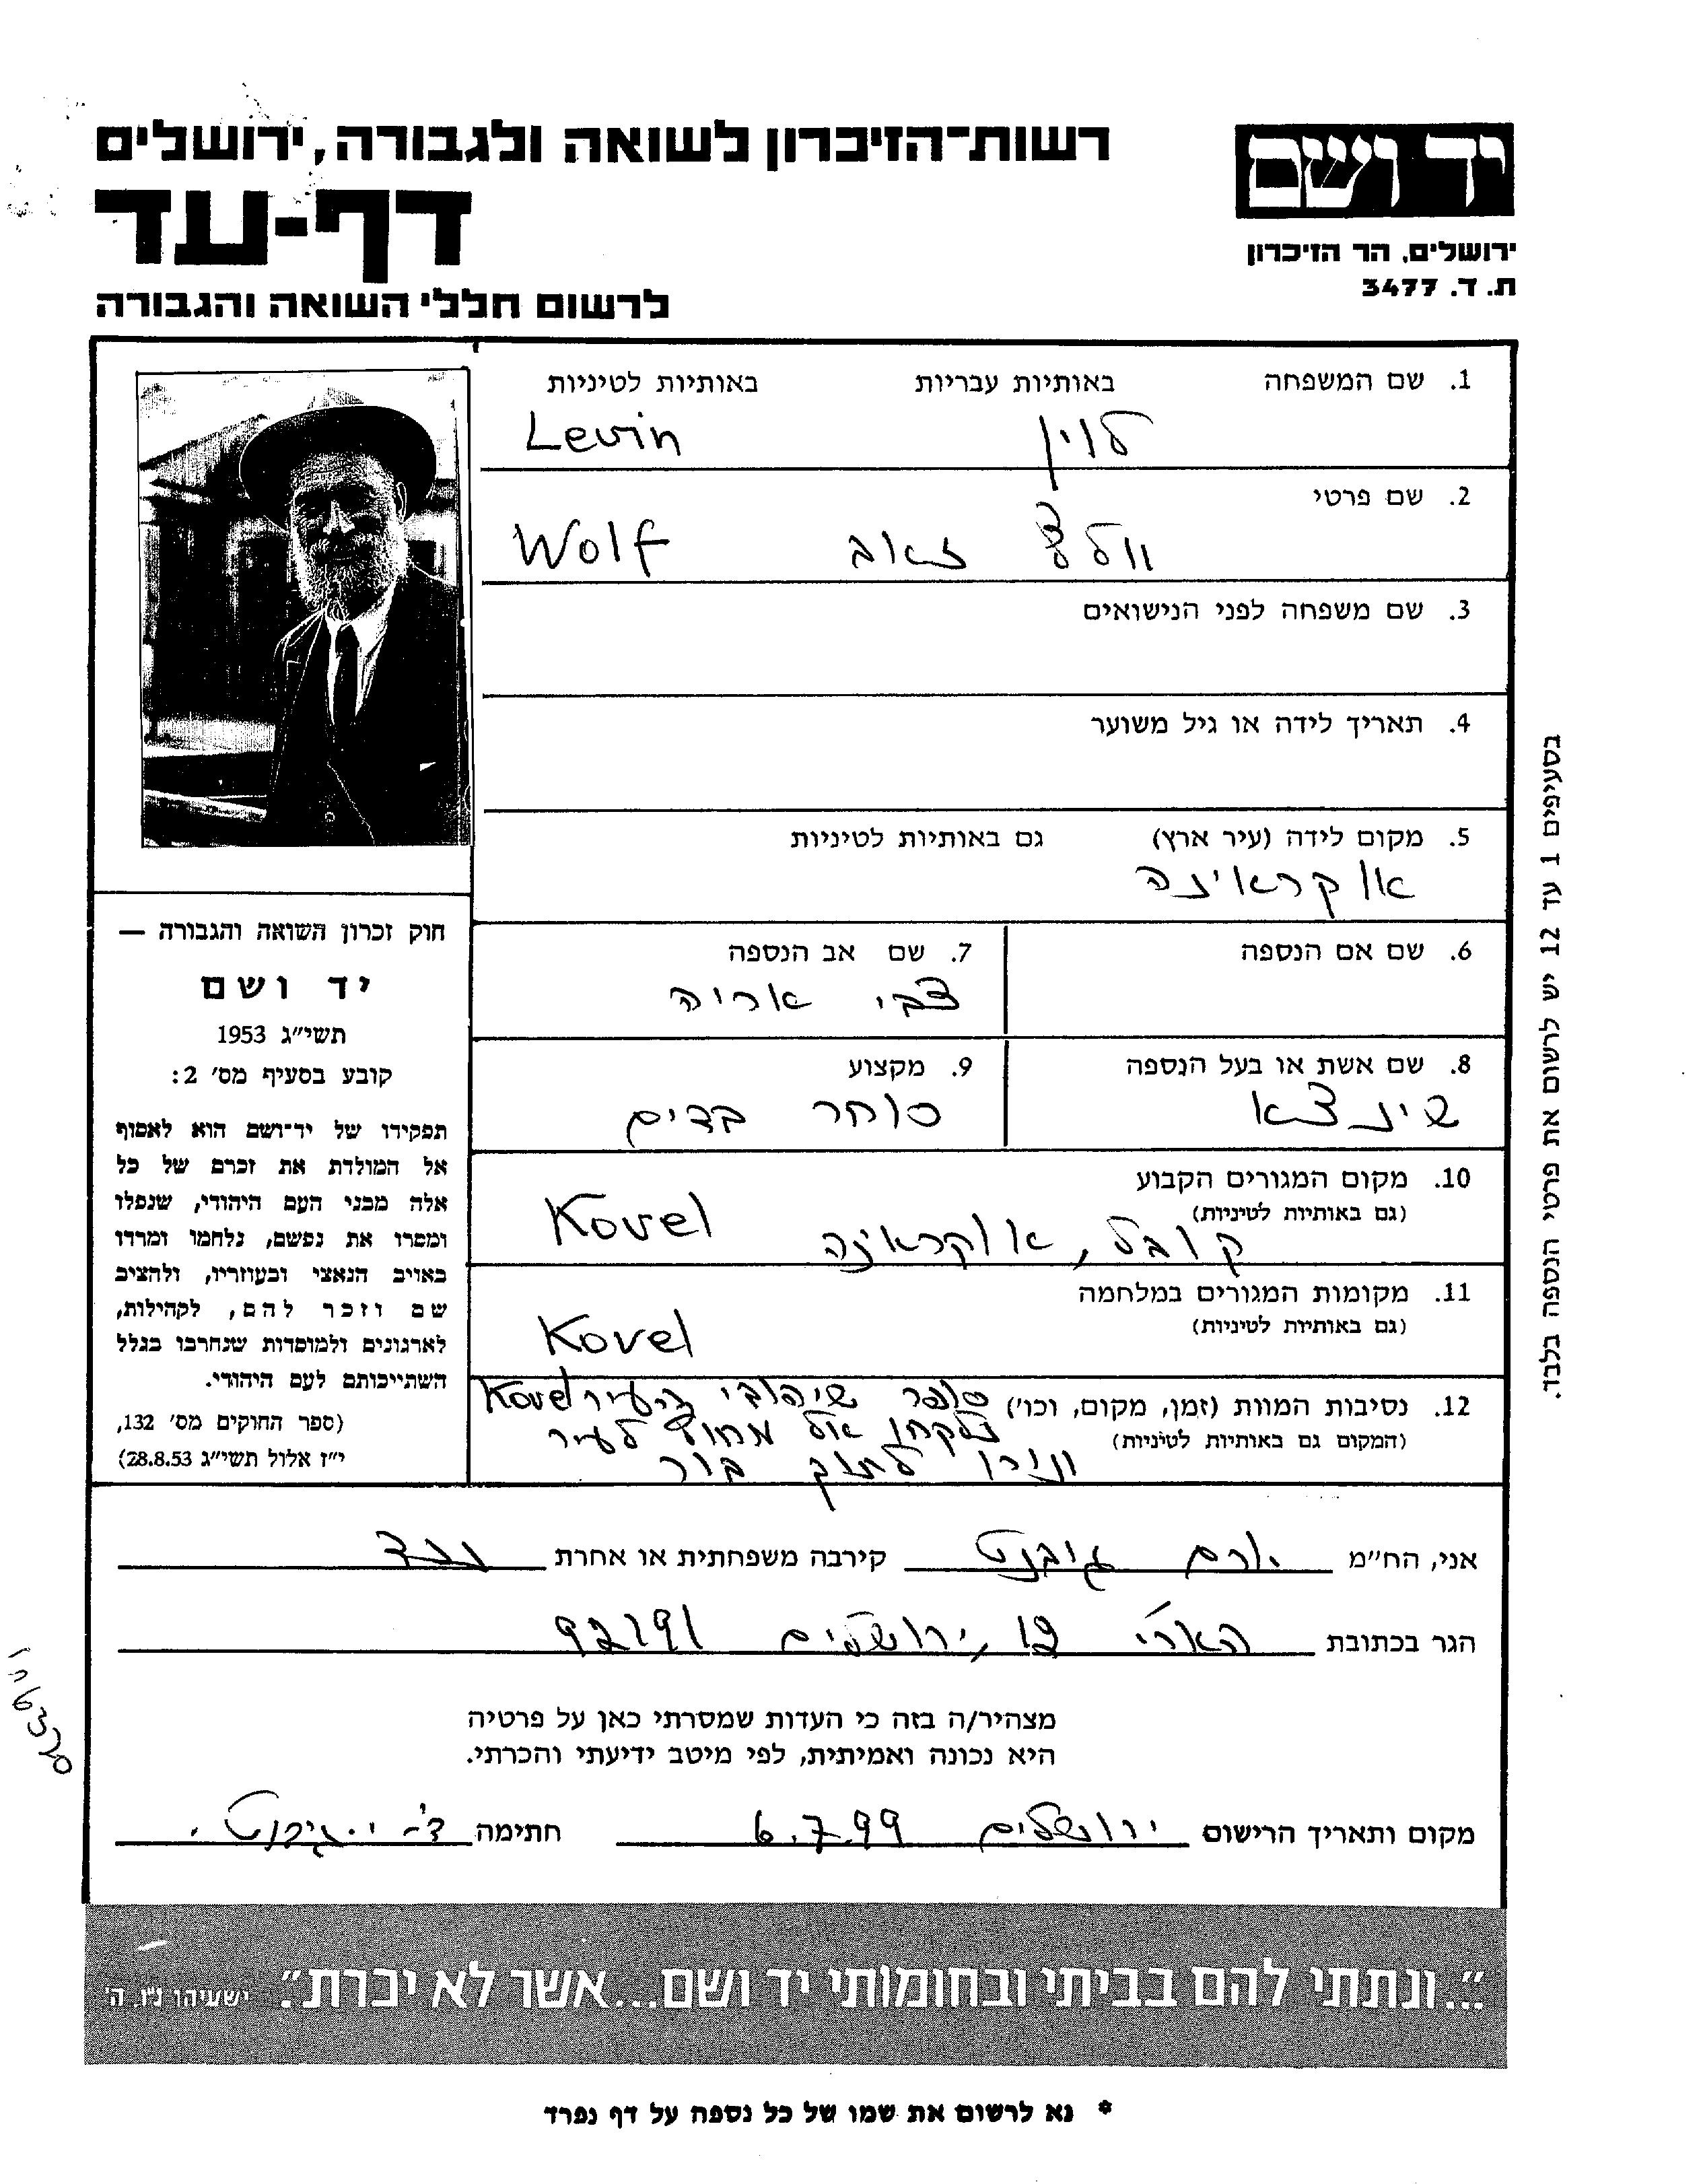 רשות-הזיכרון לשואה ולגבורה, ירושלים
דף-עד
לרשום חללי השואה והגבורה
יד ושם
ירושלים, הר הזיכרון
ת. ד. 3477
1. שם המשפחה באותיות עבריות באותיות לטיניות
לוין Levin
2. שם פרטי
וולף זאב Wolf
3. שם משפחה לפני הנישואים
4. תאריך לידה או גיל משוער
5. מקום לידה (עיר ארץ) גם באותיות לטיניות
אוקראינה
6. שם אם הנספה
7. שם אב הנספה
צבי אריה
8. שם אשת או בעל הנספה
שינצא
9. מקצוע
סוחר בדים
10. מקום המגורים הקבוע
(גם באותיות לטיניות)
קובל, אוקראינה Kovel
11. מקומות המגורים במלחמה
(גם באותיות לטיניות)
Kovel
12. נסיבות המוות (זמן, מקום, וכו') סופר שיהודי העיר Kovel
(המקום גם באותיות לטיניות) נלקחו אל מחוץ לעיר
ונורו לתוך בור
חוק זכרון השואה והגבורה —
יד ושם
תשי״ג 1953
קובע בסעיף מס׳ 2:
תפקידו של יד-ושם הוא לאסוף
אל המולדת את זכרם של כל
אלה מבני העם היהודי, שנפלו
ומסרו את נפשם, נלחמו ומרדו
באויב הנאצי ובעוזריו, ולהציב
שם וזכר להם, לקהילות,
לארגונים ולמוסדות שנחרבו בגלל
השתייכותם לעם היהודי.
(ספר החוקים מס׳ 132,
י״ז אלול תשי״ג 28.8.53)
בסעיפים 1 עד 12 יש לרשום את פרטי הנספה בלבד.
אני, הח״מ יורם גובנט קירבה משפחתית או אחרת נכד
הגר בכתובת הארי 12, ירושלים 92191
מצהיר/ה בזה כי העדות שמסרתי כאן על פרטיה
היא נכונה ואמיתית, לפי מיטב ידיעתי והכרתי.
מקום ותאריך הרישום ירושלים 6.7.99 חתימה
״...ונתתי להם בביתי ובחומותי יד ושם...אשר לא יכרת״. ישעיהו נ״ו, ה׳
* נא לרשום את שמו של כל נספה על דף נפרד